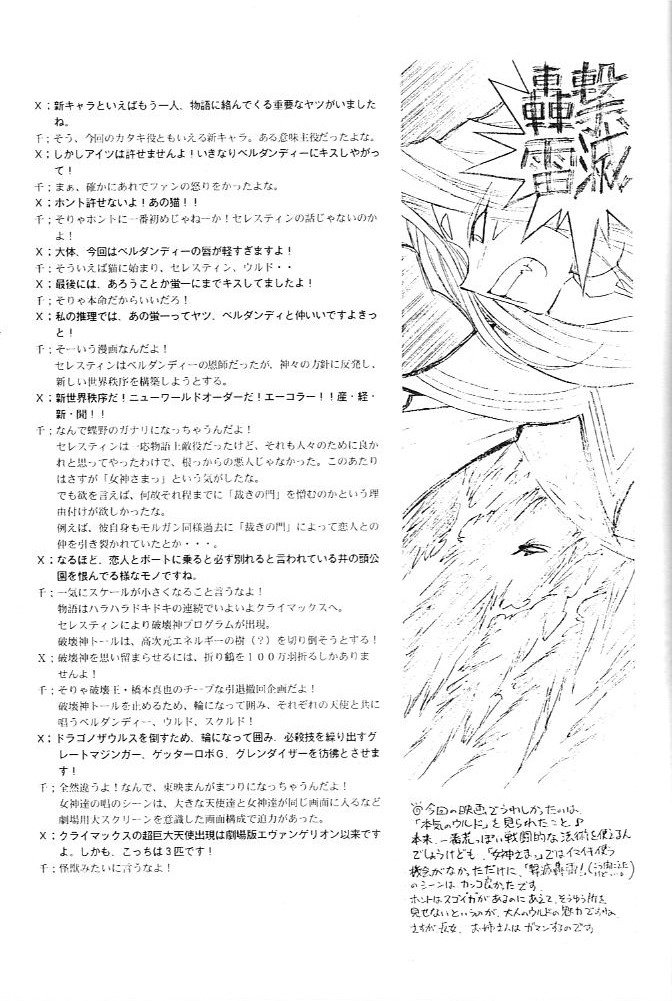 X；新キャラといえばもう一人、物語に絡んでくる重要なヤツがいました
ね。
千；そう、今回のカタキ役ともいえる新キャラ。ある意味主役だったよな。
X；しかしアイツは許せませんよ！いきなりベルダンディーにキスしやがっ
て！
千；まぁ、確かにあれでファンの怒りをかったよな。
X；ホント許せないよ！あの猫！！
千；そりゃホントに一番初めじゃねーか！セレスティンの話じゃないのか
よ！
X；大体、今回はベルダンディーの唇が軽すぎますよ！
千；そういえば猫に始まり、セレスティン、ウルド・・
X；最後には、あろうことか蛍一にまでキスしてましたよ！
千；そりゃ本命だからいいだろ！
X；私の推理では、あの蛍一ってヤツ、ベルダンディと仲いいですよきっ
と！
千；そーいう漫画なんだよ！
セレスティンはベルダンディーの恩師だったが、神々の方針に反発し、
新しい世界秩序を構築しようとする。
X；新世界秩序だ！ニューワールドオーダーだ！エーコラー！！産・経・
新・聞！！
千；なんで蝶野のガナリになっちゃうんだよ！
セレスティンは一応物語上敵役だったけど、それも人々のために良か
れと思ってやったわけで、根っからの悪人じゃなかった。このあたり
はさすが「女神さまっ」という気がしたな。
でも欲を言えば、何故それ程までに「裁きの門」を憎むのかという理
由付けが欲しかったな。
例えば、彼自身もモルガン同様過去に「裁きの門」によって恋人との
仲を引き裂かれていたとか・・・。
X；なるほど、恋人とボートに乗ると必ず別れると言われている井の頭公
園を恨んでる様なモノですね。
千；一気にスケールが小さくなること言うなよ！
物語はハラハラドキドキの連続でいよいよクライマックスへ。
セレスティンにより破壊神プログラムが出現。
破壊神トールは、高次元エネルギーの樹（？）を切り倒そうとする！
X；破壊神を思い留まらせるには、折り鶴を１００万羽折るしかありま
せんよ！
千；そりゃ破壊王・橋本真也のチープな引退撤回企画だよ！
破壊神トールを止めるため、輪になって囲み、それぞれの天使と共に
唱うベルダンディー、ウルド、スクルド！
X；ドラゴノザウルスを倒すため、輪になって囲み、必殺技を繰り出すグ
レートマジンガー、ゲッターロボG、グレンダイザーを彷彿とさせま
す！
千；全然違うよ！なんで、東映まんがまつりになっちゃうんだよ！
女神達の唱のシーンは、大きな天使達と女神達が同じ画面に入るなど
劇場用大スクリーンを意識した画面構成で迫力があった。
X；クライマックスの超巨大天使出現は劇場版エヴァンゲリオン以来です
よ。しかも、こっちは３匹です！
千；怪獣みたいに言うなよ！
撃滅
轟雷
今回の映画でうれしかったのは、
「本気のウルド」を見られたこと♪
本来、一番荒っぽい戦闘的な法術を使えるん
でしょうけども、「女神さまっ」ではイマイチ使う
機会がなかっただけに、「撃滅轟雷!!」
のシーンは カッコ良かったです。
ホントはスゴイ力があるのにあえて、そうゆう所を
見せないというのが、大人のウルドの魅力ですよね
さすが長女、お姉さんは ガマンするのです